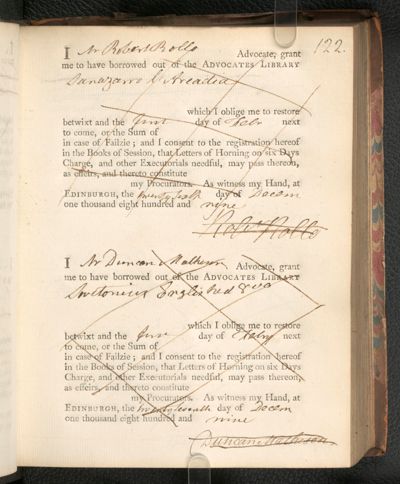 122.
I Mr Robert Rollo Advocate, grant
me to have borrowed out of the ADVOCATES LIBRARY
Sanazarro L'Arcadia
which I oblige me to restore
betwixt and the first day of Febr next
to come, or the Sum of
in case of Failzie; and I consent to the registration hereof
in the Books of Session, that Letters of Horning on six Days
Charge, and other Executorials needful, may pass thereon,
as effeirs, and thereto constitute
my Procurators. As witness my Hand, at
EDINBURGH, the day of Decem
one thousand eight hundred and nine
Robt Rollo
I Mr Duncan Matheson Advocate, grant
me to have borrowed out of the ADVOCATES LIBRARY
Suetonius Englished 8vo
which I oblige me to restore
betwixt and the first day of Febry next
to come, or the Sum of
in case of Failzie; and I consent to the registration hereof
in the Books of Session, that Letters of Horning on six Days
Charge, and other Executorials needful, may pass thereon,
as effeirs, and thereto constitute
my Procurators. As witness my Hand, at
EDINBURGH, the twenty seventh day of Decem
one thousand eight hundred and nine
Duncan Matheson